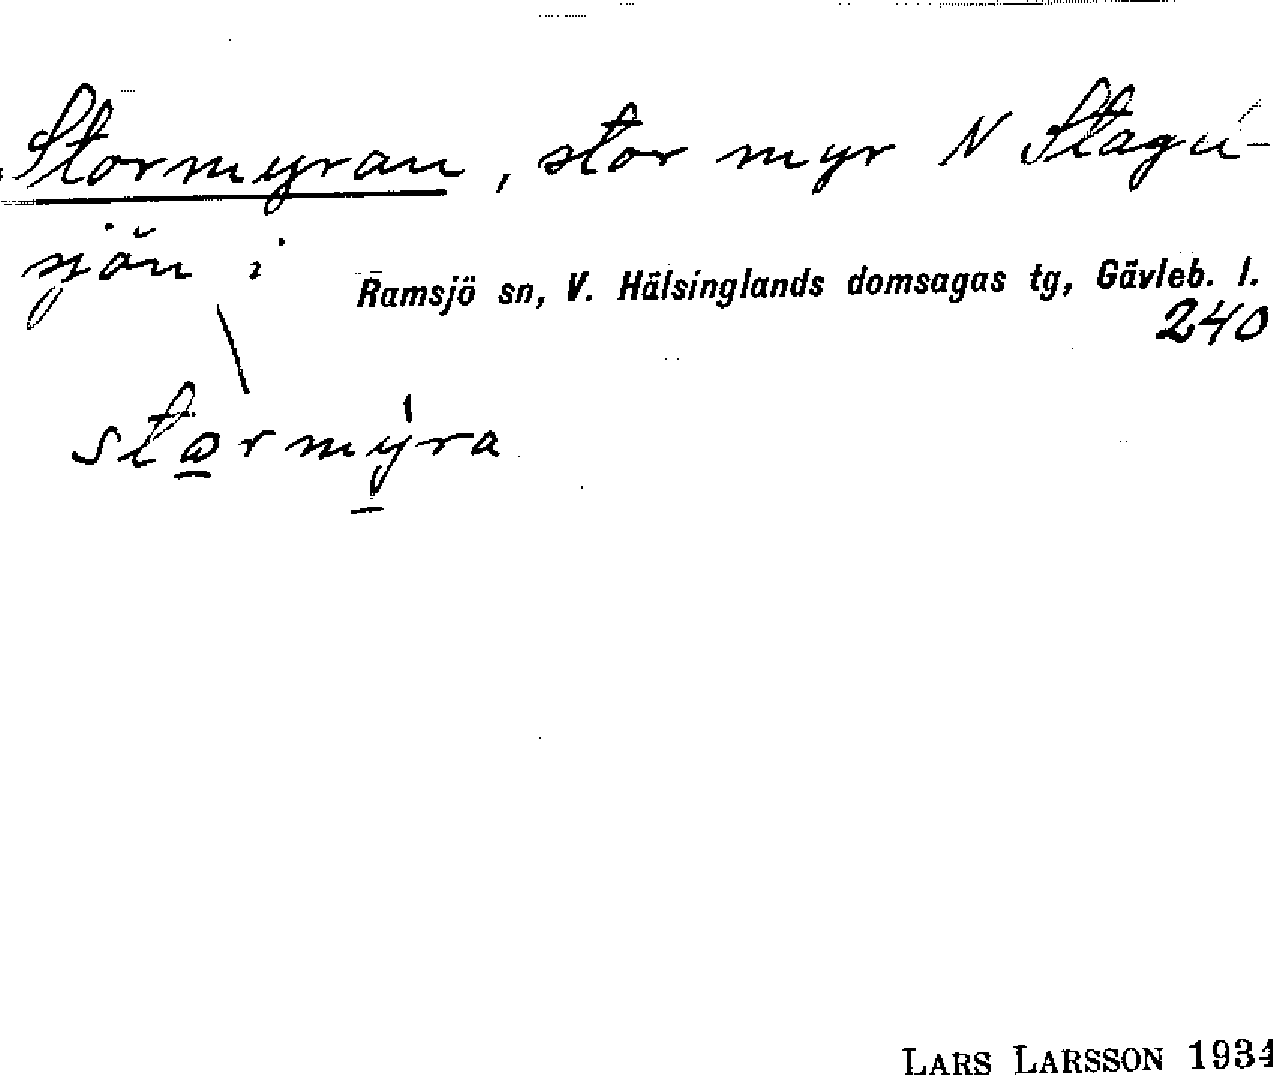 Stormyran, stor myr N Stagu-
sjön i Ramsjö sn, V. Hälsinglands domsagas tg, Gävleb. l.
240
stormýra
LARS LARSSON 1934